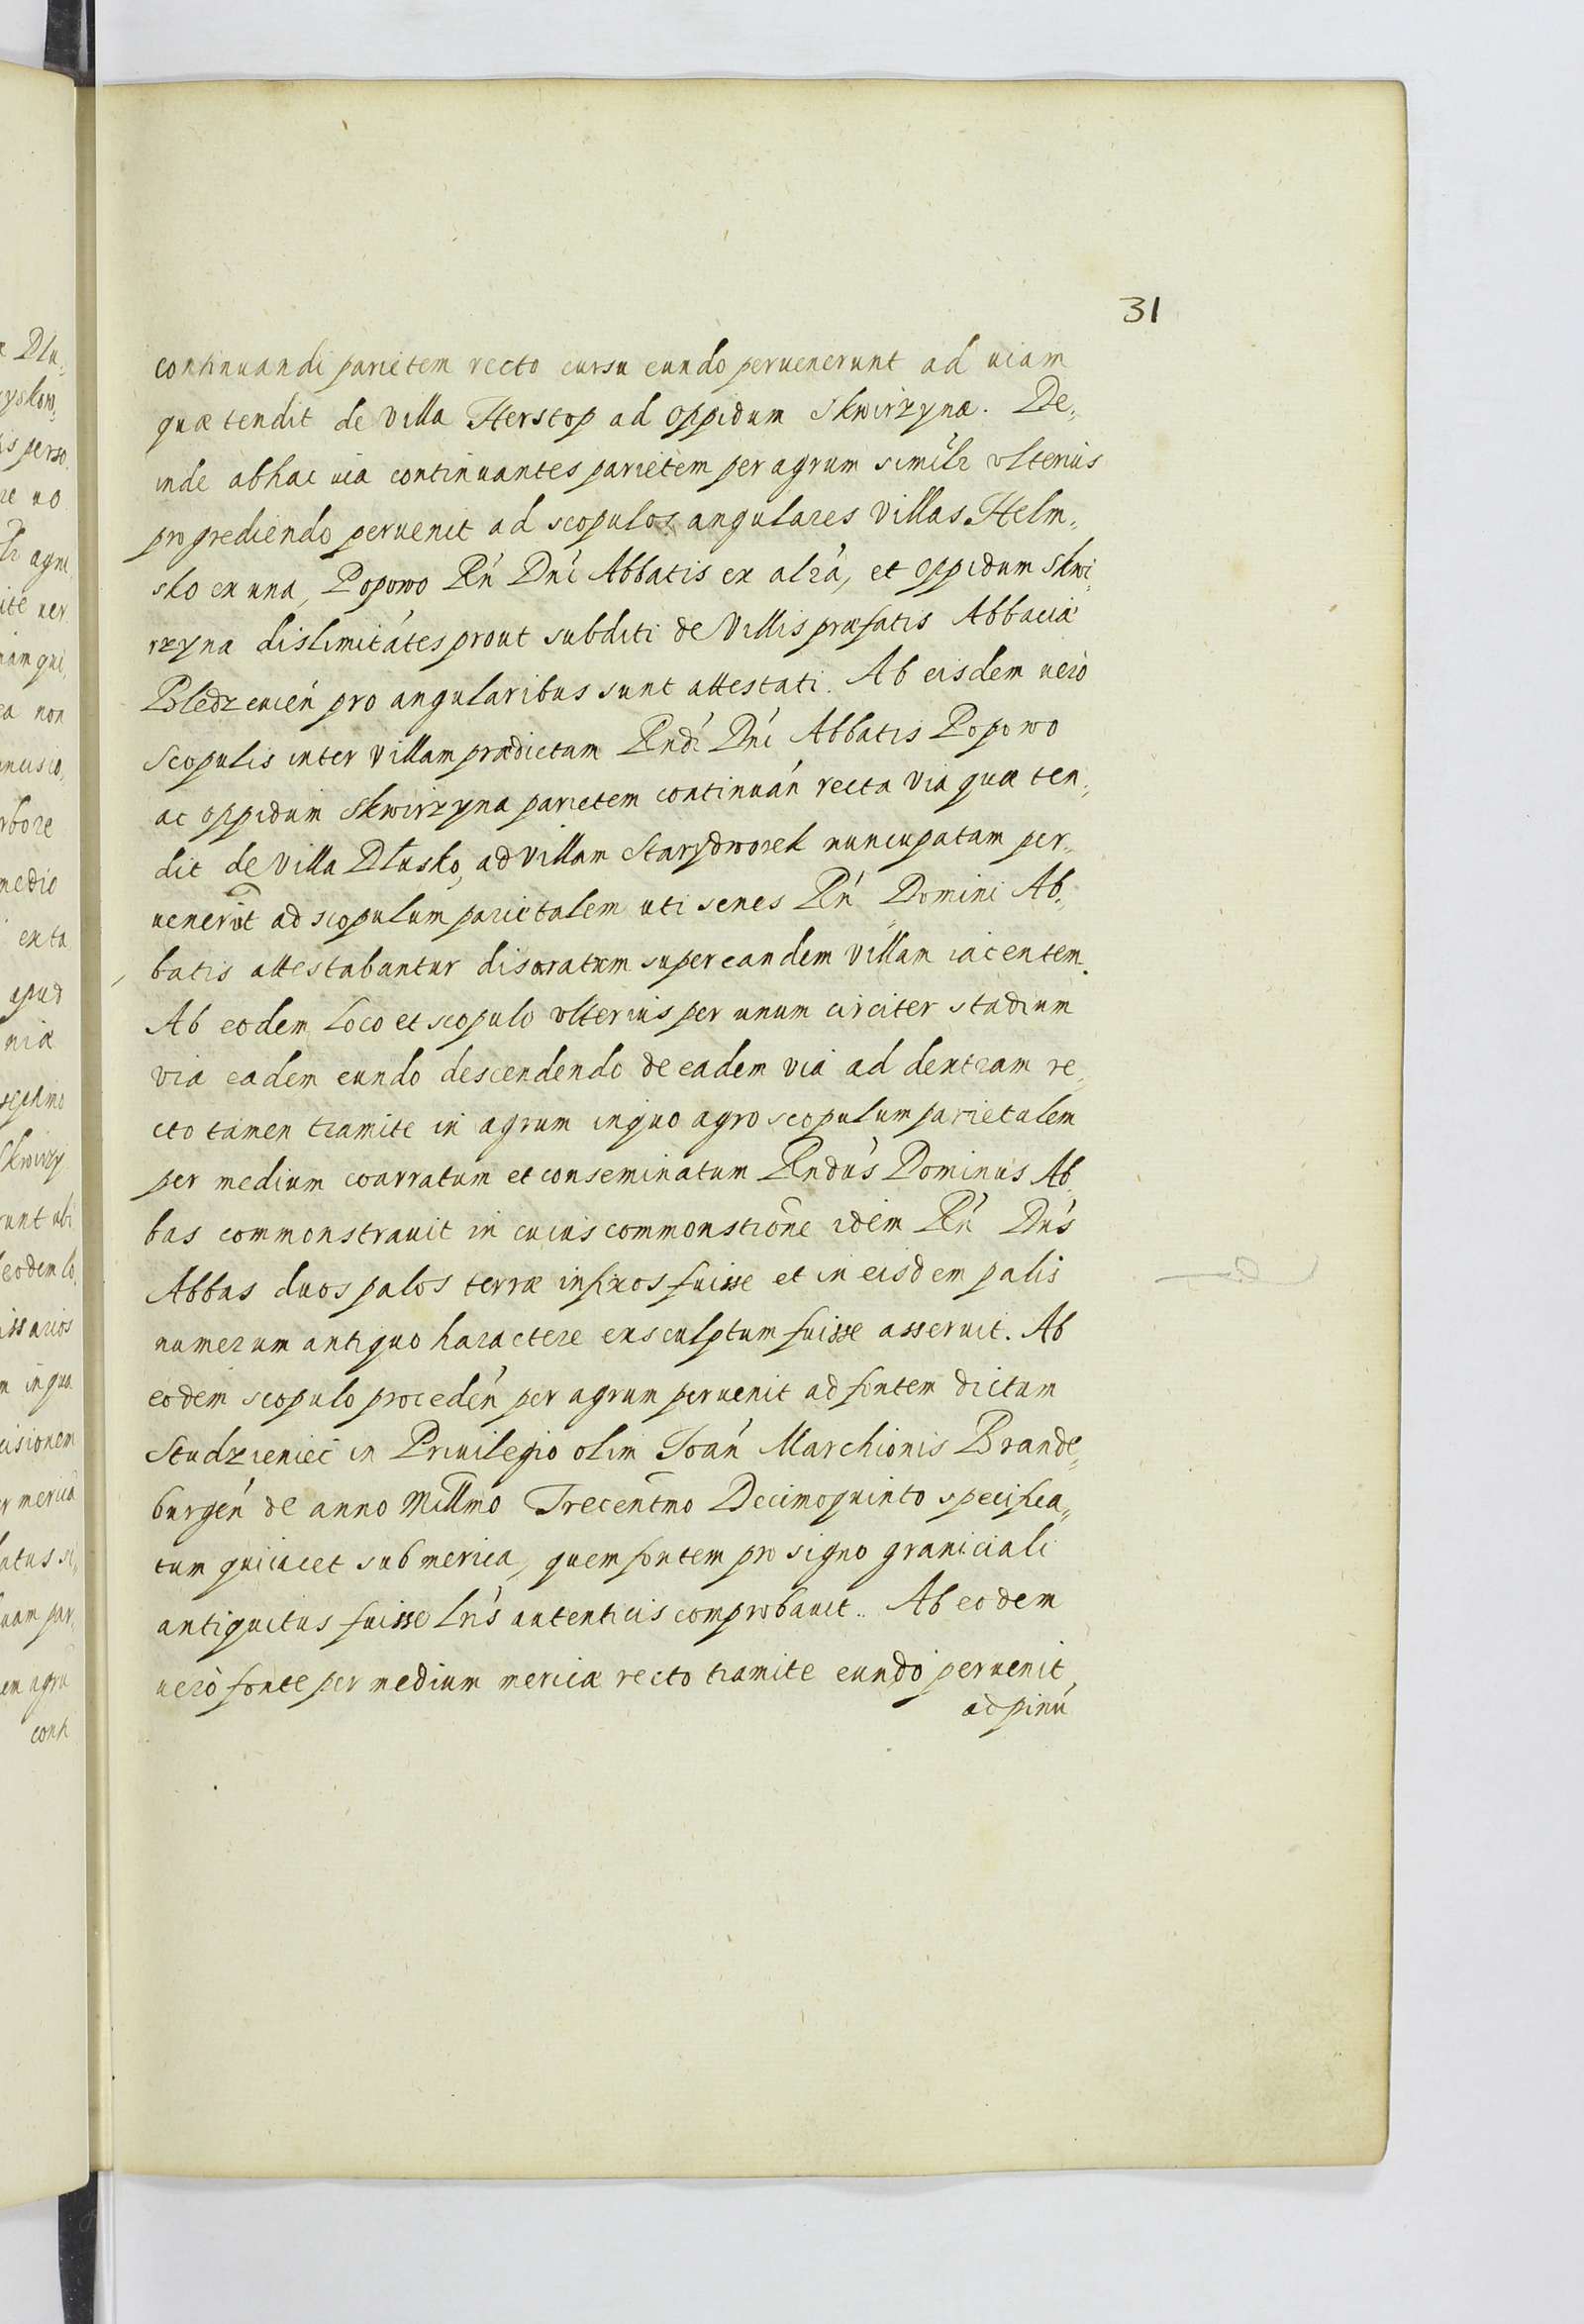 31
continuandi parietem recto cursu eundo peruenerunt ad uiam
quæ tendit de Villa Herstop ad oppidum Skwirzynæ. De„
inde abhac uia continuantes parietem per agrum similr ulterius
progrediendo peruenit ad scopulos angulares Villas Helm„
sko ex una, Popowo Rń Dńi Abbatis ex alrà, et oppidum Skwi„
rzyna dislimitátes prout subditi de Villis præfatis Abbaciæ
Bledzeuień pro angularibus sunt attestati. Ab eisdem uerò
Scopulis inter Villam prædictam Rndi Dńi Abbatis Popowo
ac oppidum Skwirzyna parietem continuáń recta Via quæ ten„
dit de Villa Dłusko, ad Villam Starydworek nuncupatam per„
uenerũt ad scopulum parietalem uti senes Rń Domini Ab„
batis attestabantur disaratum super eandem Villam iacentem.
Ab eodem Loco et scopulo ulterius per unum circiter stadium
via eadem eundo descendendo de eadem via ad dextram re„
cto tamen tramite in agrum in quo agro scopulum parietalem
per medium coarratum et conseminatum Rndús Dominus Ab„
bas commonstrauit in cuius commonstrõne idem Rń Dńs
Abbas duos palos terræ infixos fuisse et in eisdem palis
numerum antiquo haractere exsculptum fuisse asseruit. Ab
eodem scopulo procedéń per agrum peruenit ad fontem dictum
Studzieniec in Priuilegio olim Joáń Marchionis Brande„
burgéń de anno Millmo Trecentmo Decimoquinto specifica„
tum qui iacet sub merica, quem fontem pro signo graniciali
antiquitus fuisse Lrís autenticis comprobauit. Ab eodem
uerò fonte per medium mericæ recto tramite eundo peruenit
ad pinú